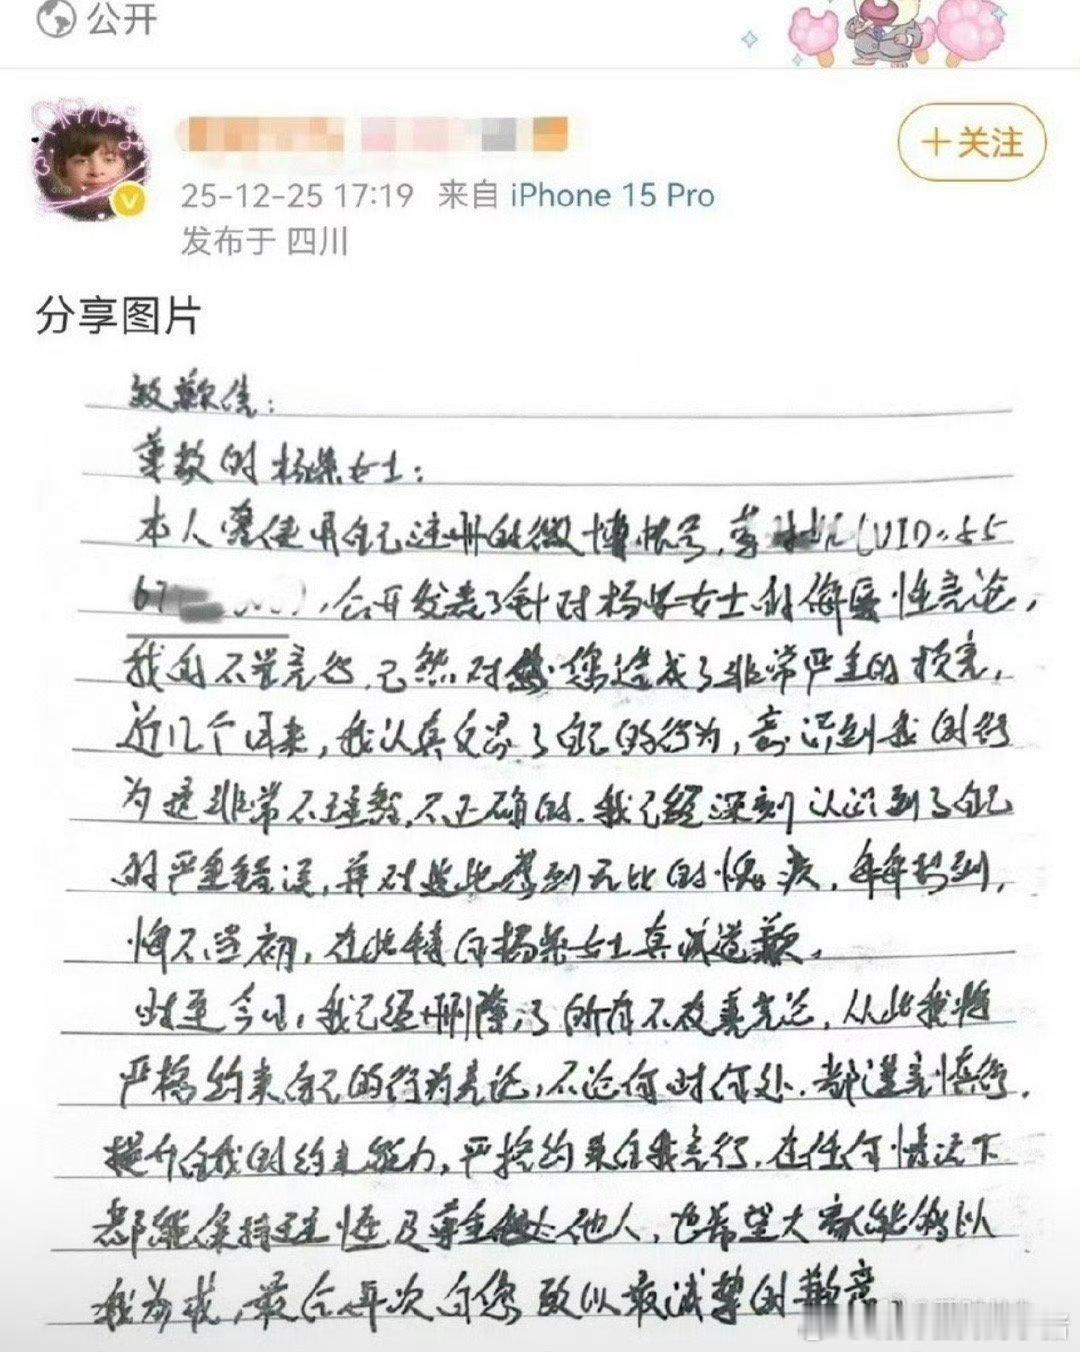 公开
+关注
25-12-25 17:19 来自 iPhone 15 Pro
发布于 四川
分享图片
致歉信：
尊敬的杨紫女士：
本人曾使用自己注册的微博帐号，(UID:55
67)，公开发表了针对杨紫女士的侮辱性言论，
我的不当言行，已然对您造成了非常严重的损害，
近几个月来，我认真反思了自己的行为，意识到我的行
为是非常不理智，不正确的，我已经深刻认识到了自己
的严重错误，并对此感到无比的愧疚，每每想到，
悔不当初，在此特向杨紫女士真诚道歉。
时至今日，我已经删除了所有不友善言论，从此我将
严格约束自己的行为言论，不论何时何处，都谨言慎行，
提升自我的约束能力，严格约束自我言行，在任何情况下
都能保持理性及尊重他人，也希望大家能够以
我为戒，最后再次向您致以最诚挚的歉意